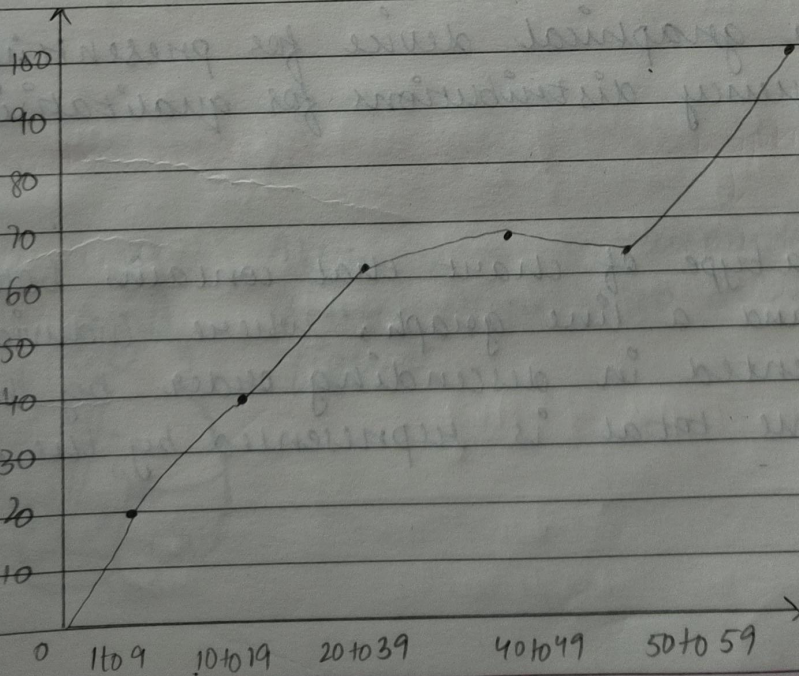 100
90
80
70
60
50
40
30
20
10
0 1to9 10to19 20to39 40to49 50to59